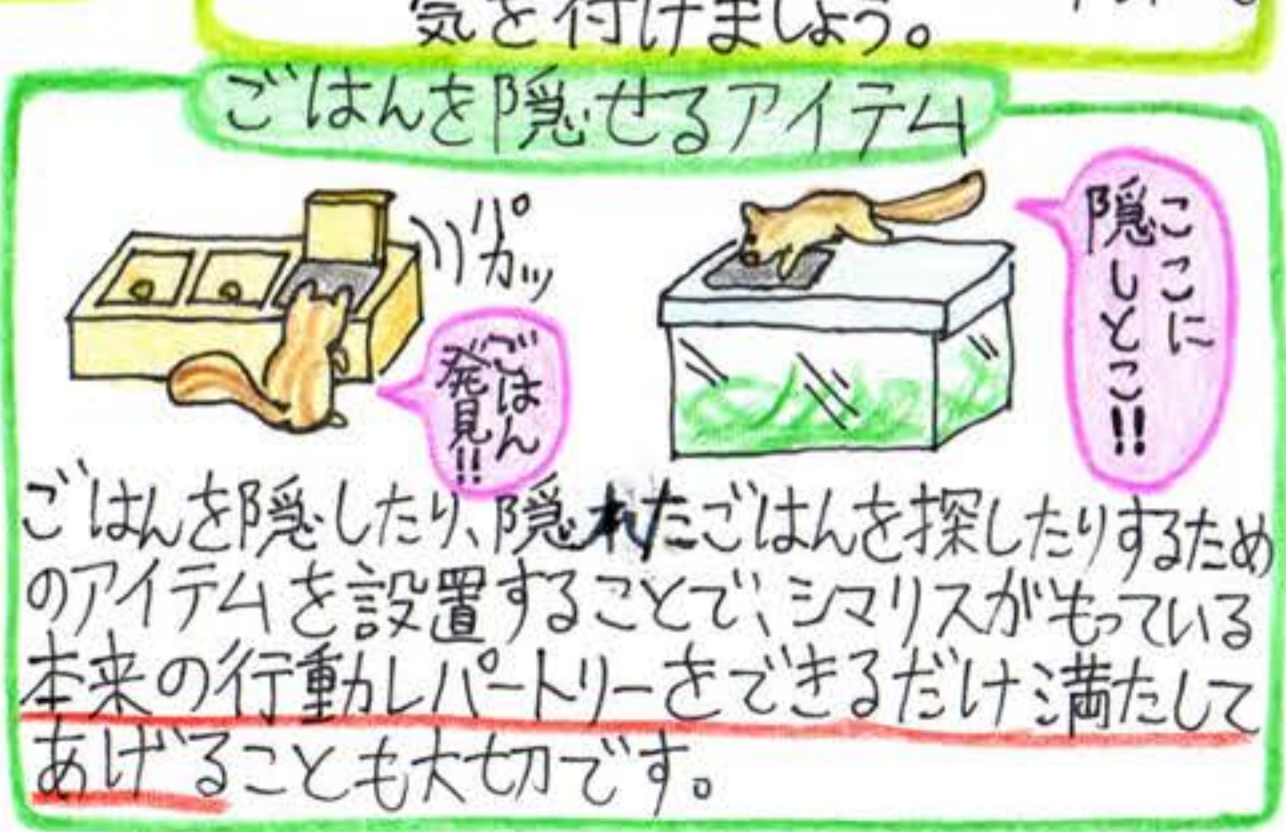 気を付けましょう。
ごはんを隠せるアイテム
パカッ
ごはん
発見!!
ここに
隠しとこ!!
ごはんを隠したり、隠れたごはんを探したりするため
のアイテムを設置することで、シマリスがもっている
本来の行動レパートリーをできるだけ満たして
あげることも大切です。